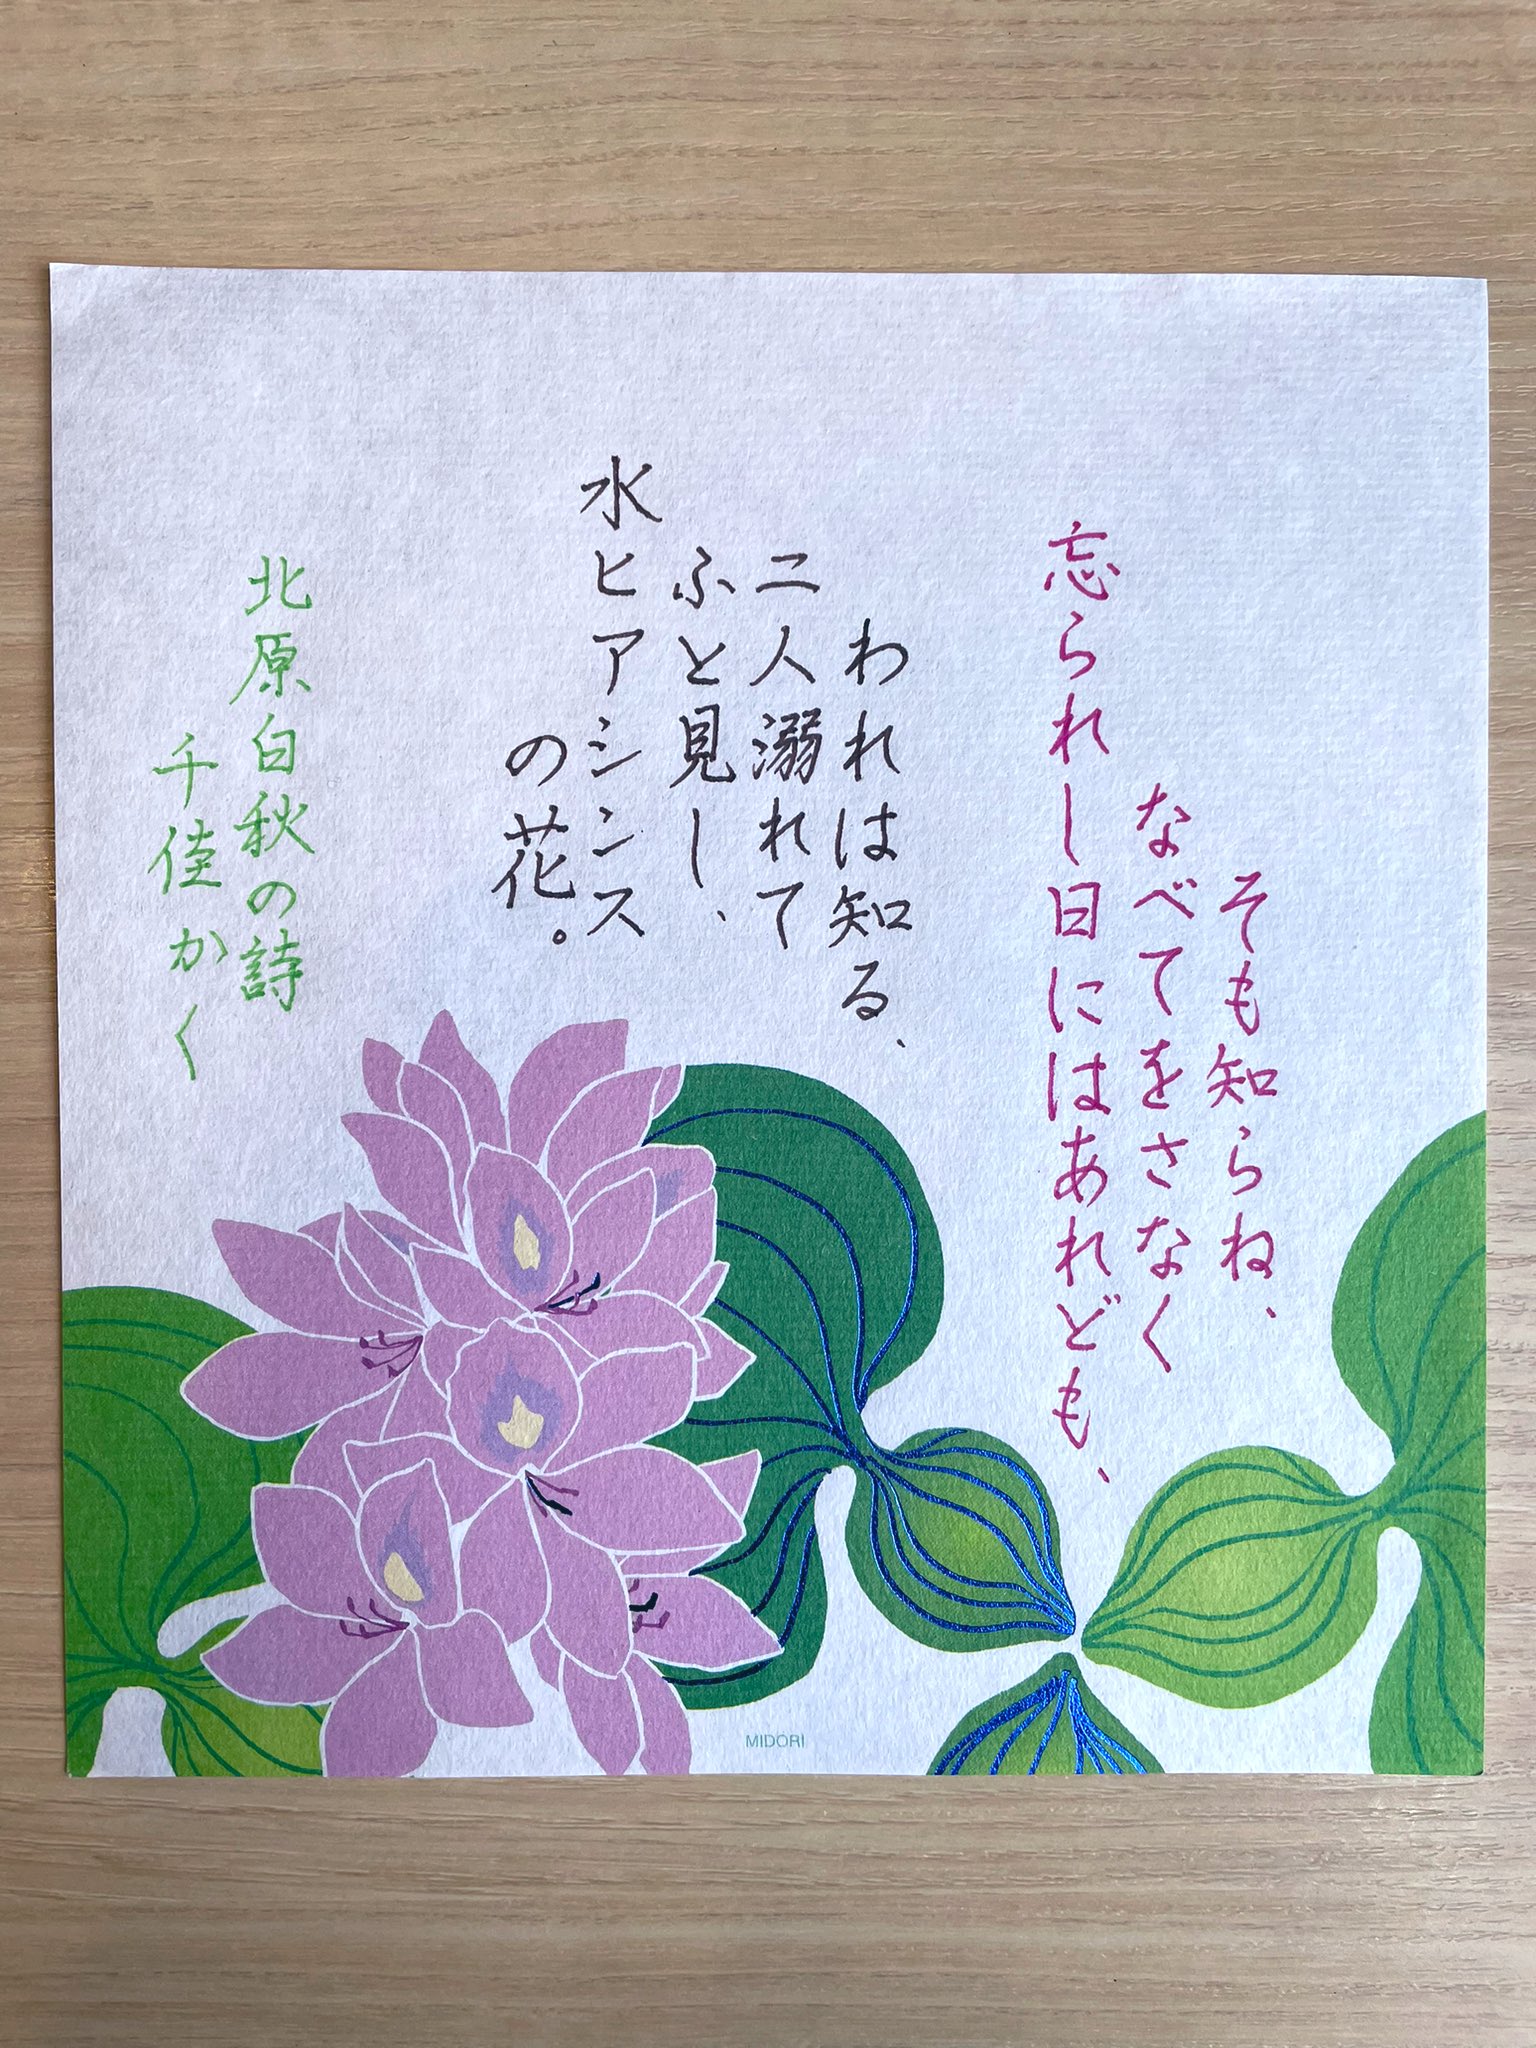 そも知らね、
なべてをさなく
忘られし日にはあれども、
われは知る、
二人溺れて
ふと見し、
水ヒアシンス
の花。
北原白秋の詩
千佳かく
MIDORI